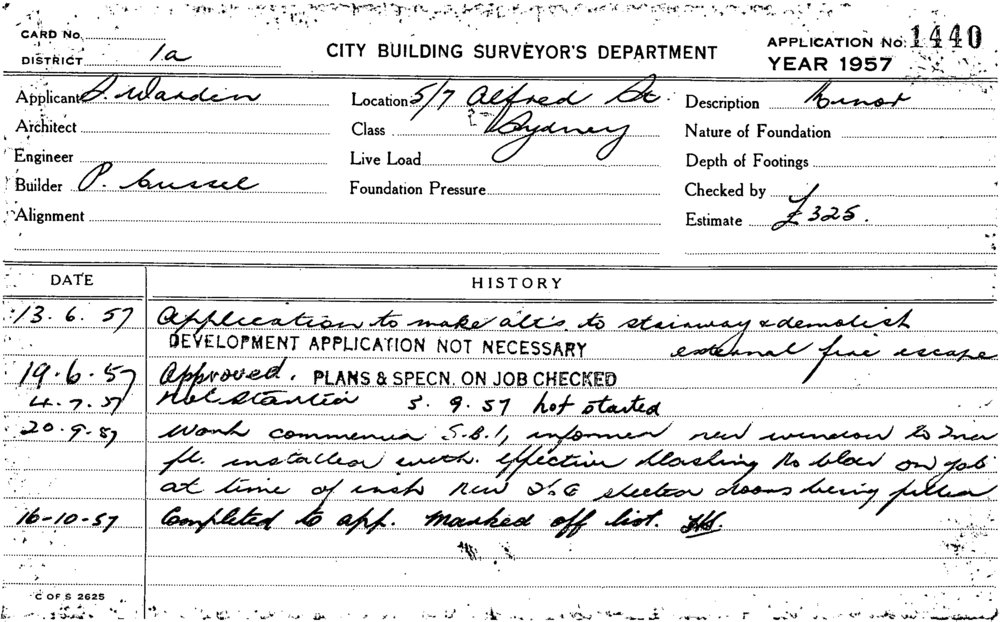 CARD No.
DISTRICT 1a
CITY BUILDING SURVEYOR'S DEPARTMENT
APPLICATION No. 1440
YEAR 1957
Applicant J. Warden Location 5/7 Alfred St. Description Minor
Architect Class Sydney Nature of Foundation
Engineer Live Load Depth of Footings
Builder P. Foundation Pressure Checked by
Alignment Estimate £325.
DATE HISTORY
13.6.57 Application to make alt's. to stairway & demolish
DEVELOPMENT APPLICATION NOT NECESSARY external fire escape
19.6.57 Approved. PLANS & SPECN. ON JOB CHECKED
4.7.57 Not started 3.9.57 not started
20.9.57 Work commenced S.B.1, informed new window to 2nd
fl. installed with effective flashing No on job
at time of insp. New doors being fitted
16-10-57 Completed to app. Marked off list.
C OF S 2625